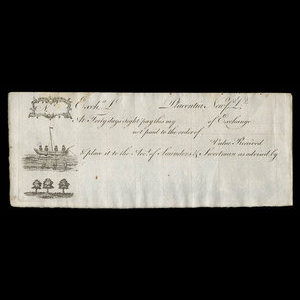 Exch.ᵉ £ Placentia Newf.ᵈ L.ᵈ
At Forty days sight pay this my of Exchange
not paid to the order of
Value Received
& place it to the Acc.ᵗ of Saunders & Sweetman as advised by